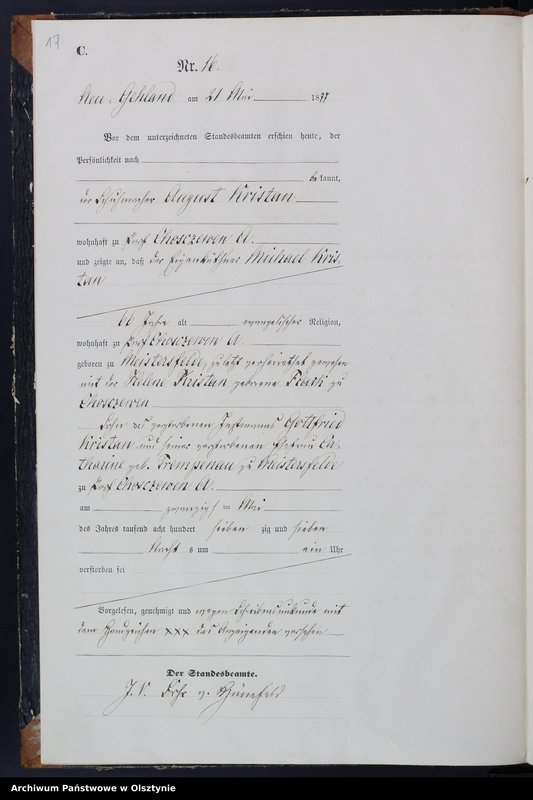 17
C.
Nr. 16.
Neu-Gehland am 21 Mai 1877
Vor dem unterzeichneten Standesbeamten erschien heute, der
Persönlichkeit nach
be kannt,
der Schuhmacher August Kristan
wohnhaft zu Dorf Choszewen A.
und zeigte an, daß der Eigenkäthner Michael Kris-
tan
Jahre alt evangelischer Religion,
wohnhaft zu Dorf Choszewen A.
geboren zu Meistersfelde, zuletzt verheirathet gewesen
mit der Helene Kristan geborene zu
Choszewen
Sohn des verstorbenen Instmanns Gottfried
Kristan und seiner verstorbenen Ehefrau Ca-
tharine geb. Trempenau zu Meistersfelde
zu Dorf Choszewen A.
am zwanzigst en Mai
des Jahres tausend acht hundert sieben zig und sieben
Nacht s um ein Uhr
verstorben sei
Vorgelesen, genehmigt und wegen Schreibensunkunde mit
dem Handzeichen xxx des Anzeigenden versehen
Der Standesbeamte.
J. V. v.
Archiwum Państwowe w Olsztynie